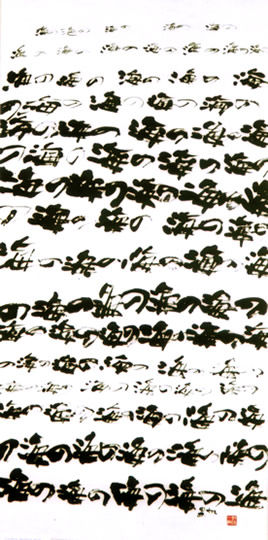 海の海の 海の 海の
海の 海の 海の 海の 海の海の
海の海の 海の 海の 海の
海の海の 海の 海の 海の
海の海の 海の海の海
の海の海の海の海の海
の海の海の海の海の海
海の 海の 海の海
海の海の海の海の海の
海の海の海の海の海の
海の海の海の海の海の海の
海の海の海の 海の海の
海の海の 海の海の海の
海の海の海の海の海の
海の海の海の海の海
海の海の海の海の海